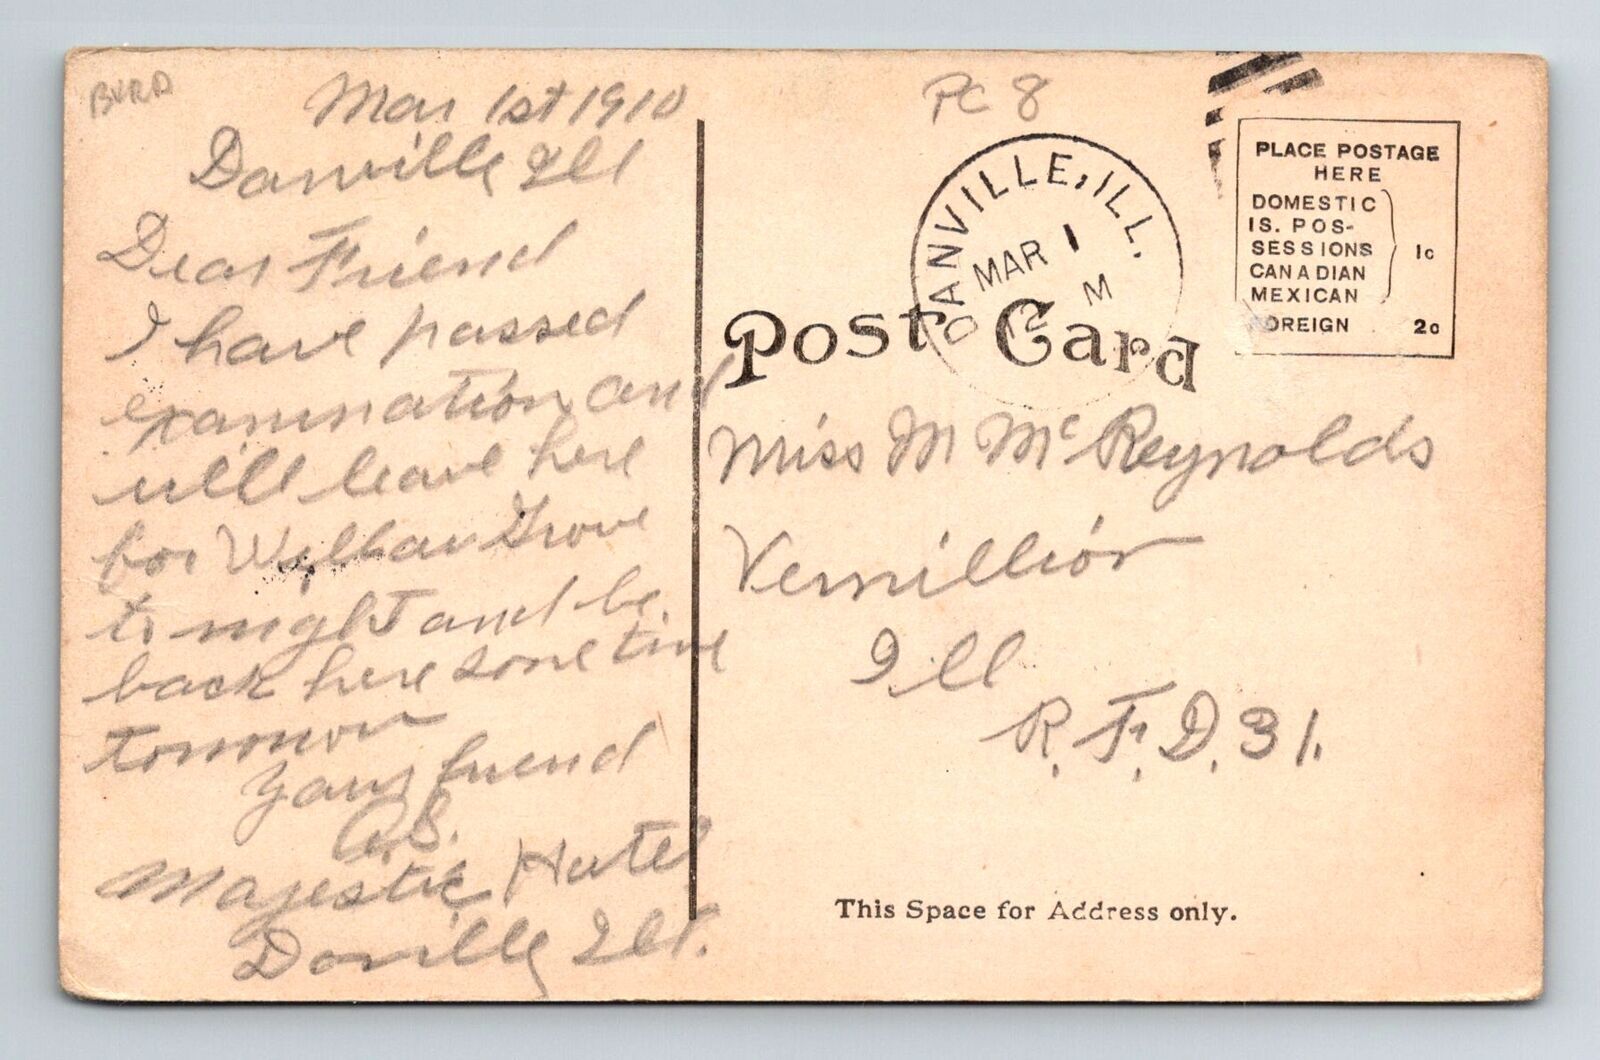 BYRD
Mar 1st 1910
Danville Ill
Dear Friend
I have passed
examination and
will leave here
for Grove
to night and be
back here some time
tomorrow
your friend
Majestic Hotel
Danville Ill.
PC 8
DANVILLE, ILL.
MAR 1
M
PLACE POSTAGE
HERE
DOMESTIC
IS. POS-
SESSIONS
CANADIAN
MEXICAN
1c
FOREIGN 2c
Post Card
Miss M McReynolds
Vermillion
Ill
R. F. D. 31.
This Space for Address only.